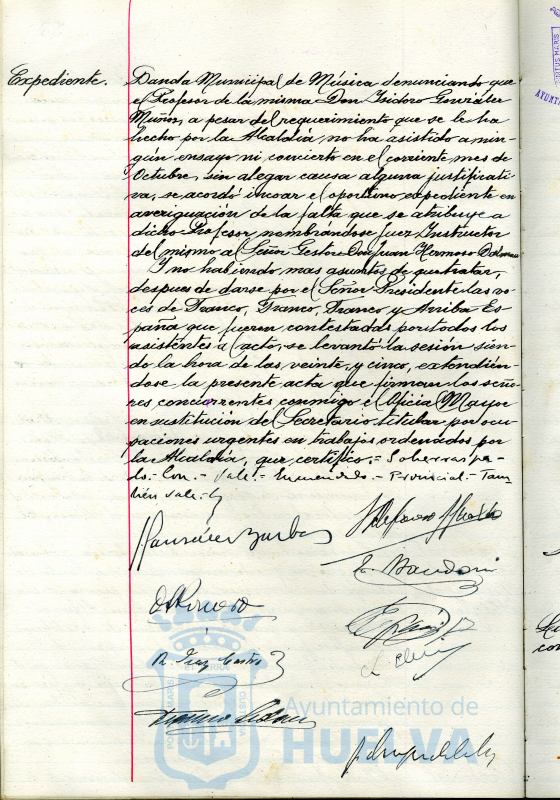 Expediente.
Banda Municipal de Música denunciando que
el Profesor de la misma Don Isidoro González
Muñoz, a pesar del requerimiento que se le ha
hecho por la Alcaldía, no ha asistido a nin-
gún ensayo ni concierto en el corriente mes de
Octubre, sin alegar causa alguna justificati-
va, se acordó incoar el oportuno expediente en
averiguación de la falta que se atribuye a
dicho Profesor nombrándose Juez Instructor
del mismo al Señor Gestor Don Juan Hermoso
Y no habiendo mas asuntos de que tratar,
despues de darse por el Señor Presidente las vo-
ces de Franco, Franco, Franco y Arriba Es-
paña que fueron contestadas por todos los
asistentes al acto, se levantó la sesión sien-
do la hora de las veinte, y cinco, extendién-
dose la presente acta que firman los seño-
res, concurrentes conmigo el Oficial Mayor
en sustitución del Secretario titular por ocu-
paciones urgentes en trabajos ordenados por
la Alcaldía, que certifico.= Soborraspa-
do.- Con.- Vale.- Enmendado.- Provincial.- Tam
bién vale.-
Ayuntamiento de
HUELVA